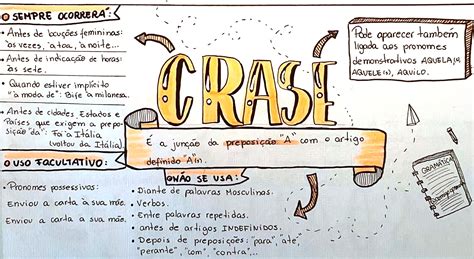 O SEMPRE OCORRERÁ:
• Antes de locuções femininas:
às vezes, à toa, à noite...
• Antes de indicação de horas:
às sete.
• Quando estiver implícito
"à moda de": Bife à milanesa.
• Antes de cidades, Estados e
Países que exigem a prepo-
sição "da": Fui à Itália
(voltou da Itália)
O USO FACULTATIVO:
• Pronomes possessivos:
Enviou a carta à sua mãe.
Enviou a carta a sua mãe.
CRASE
É a junção da preposição "A" com o artigo
definido "A".
O NÃO SE USA:
• Diante de palavras Masculinas.
• Verbos.
• Entre palavras repetidas.
• antes de artigos INDEFINIDOS.
• Depois de preposições: "para", até,
"perante", "com", "contra"...
Pode aparecer também
ligada aos pronomes
demonstrativos AQUELA(s),
AQUELE(s), AQUILO.
GRAMÁTICA